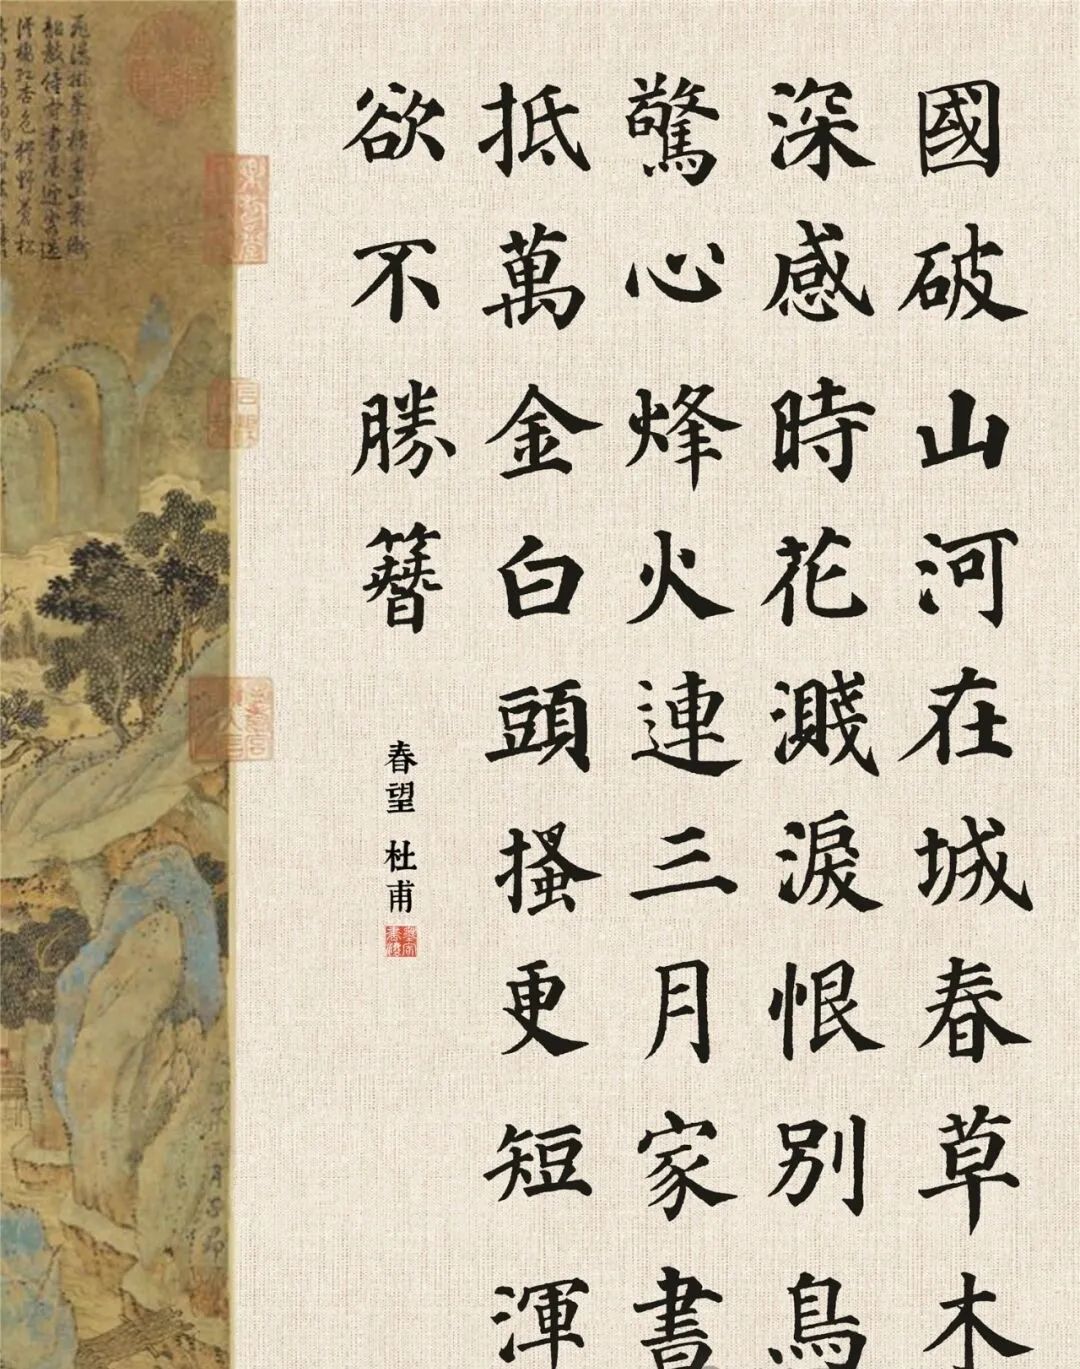 國破山河在城春草木
深感時花濺淚恨別鳥
驚心烽火連三月家書
抵萬金白頭搔更短渾
欲不勝簪
春望 杜甫